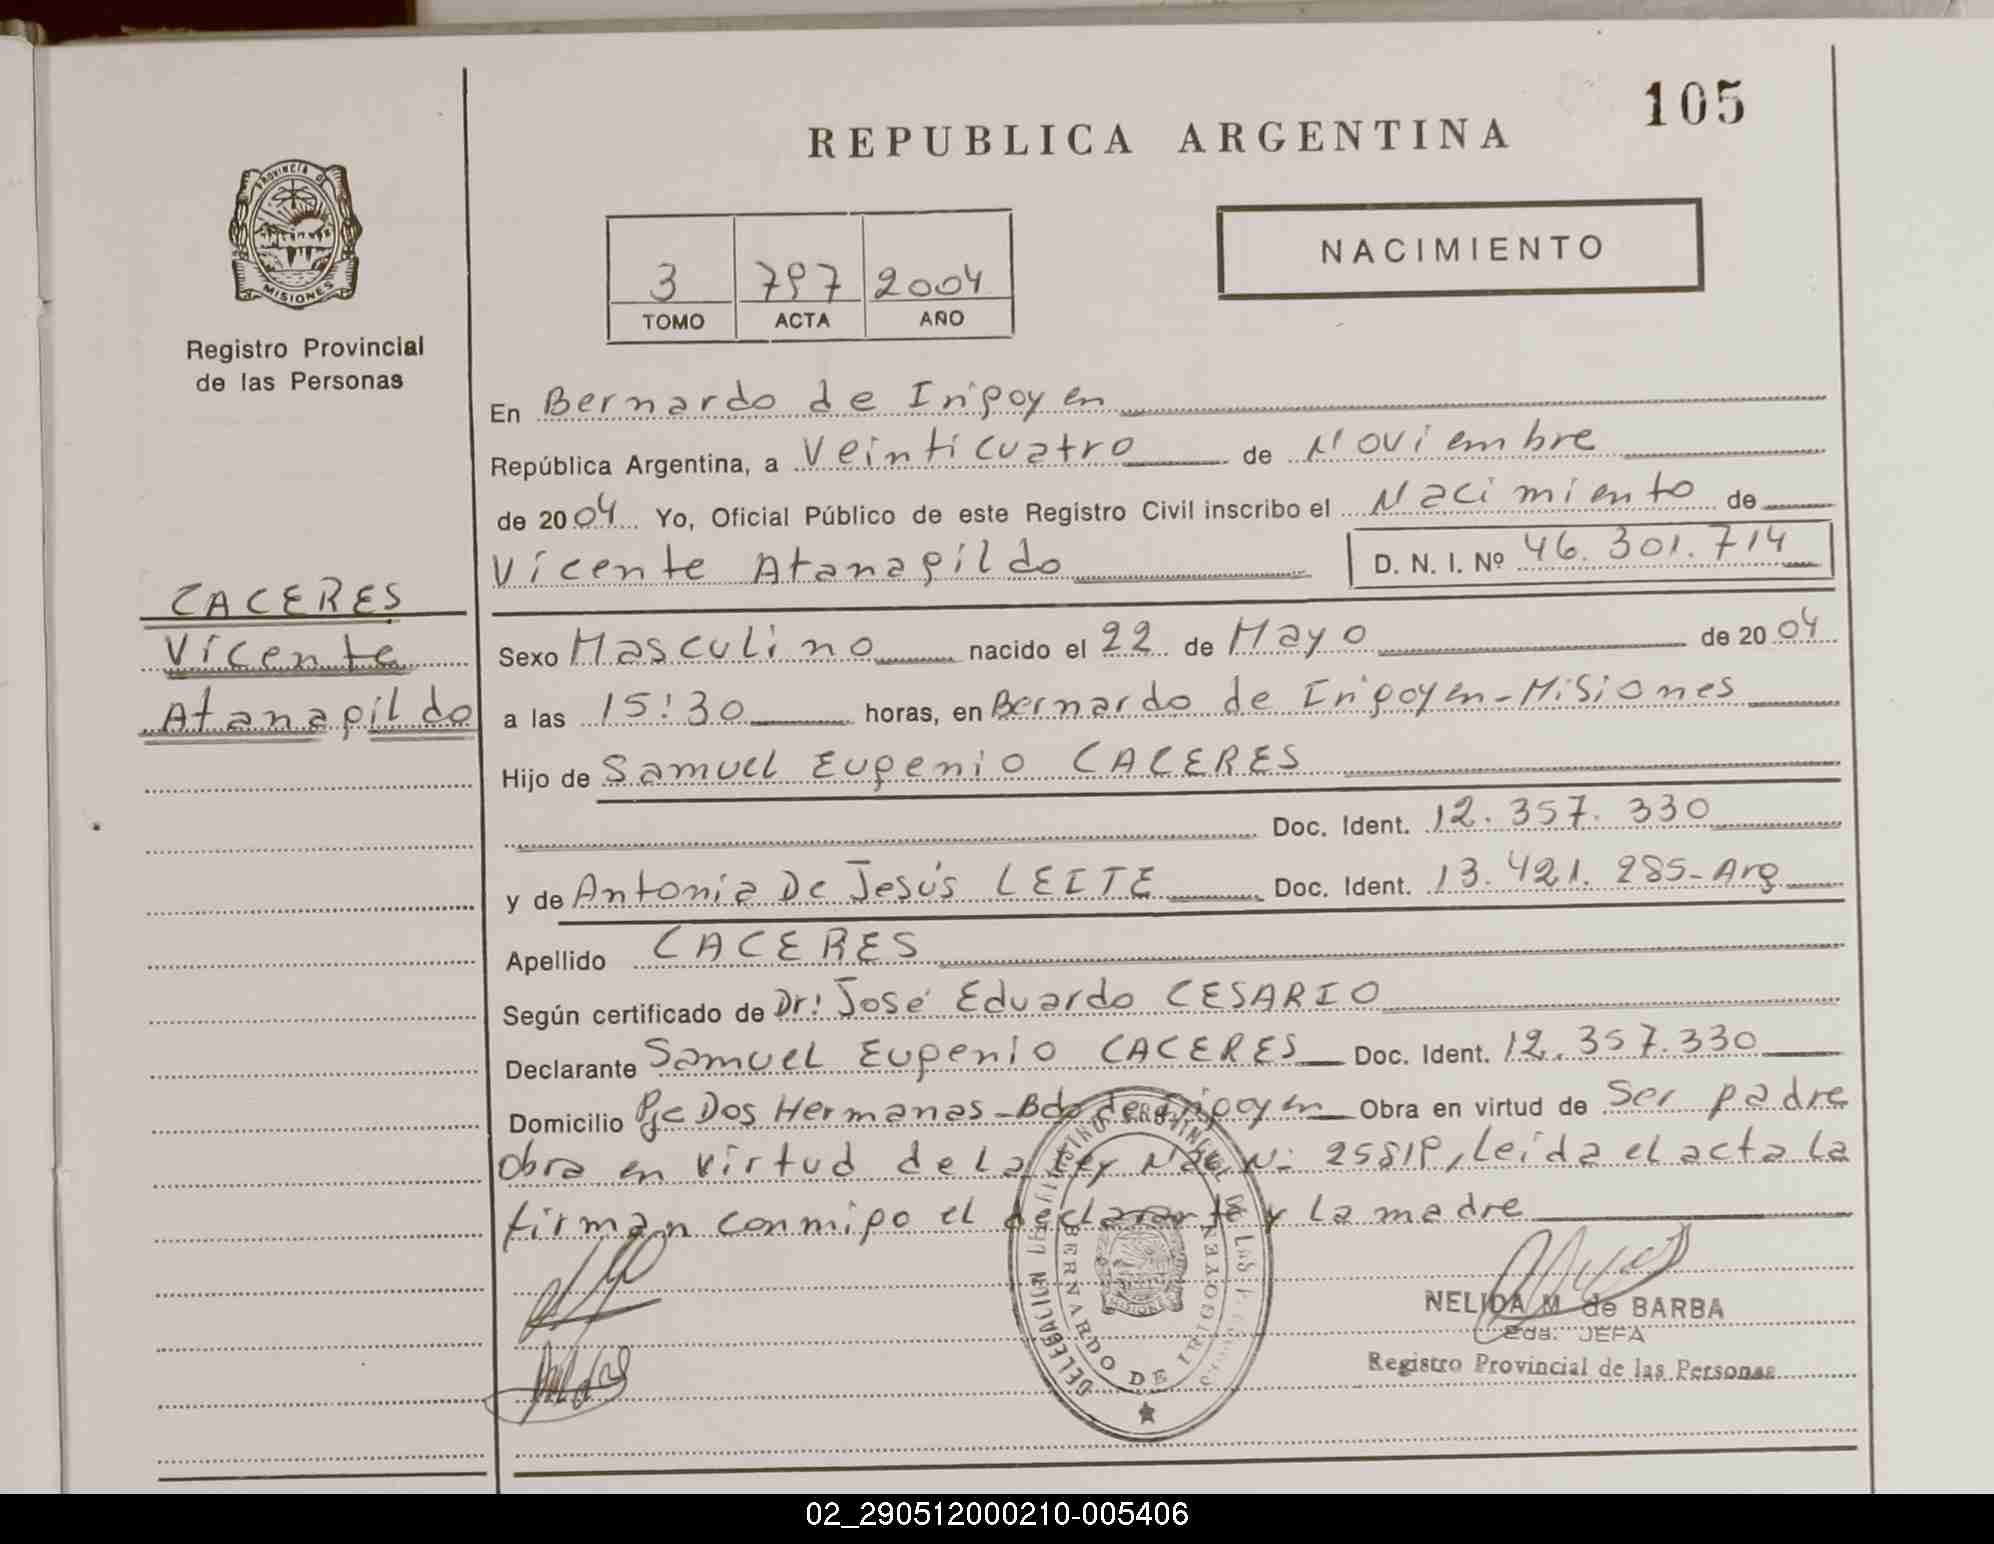 105
REPUBLICA ARGENTINA
PROVINCIA D
MISIONES
NACIMIENTO
3 797 2004
TOMO ACTA AÑO
Registro Provincial
de las Personas
En Bernardo de Irigoyen
República Argentina, a Veinticuatro de Noviembre
de 2004 Yo, Oficial Público de este Registro Civil inscribo el Nacimiento de
Vicente Atanagildo D. N. I. Nº 46.301.714
CACERES
Vicente
Atanagildo
Sexo Masculino nacido el 22 de Mayo de 2004
a las 15:30 horas, en Bernardo de Irigoyen-Misiones
Hijo de Samuel Eugenio CACERES
Doc. Ident. 12.357.330
y de Antonia De Jesús LEITE Doc. Ident. 13.421.285-Arg
Apellido CACERES
Según certificado de Dr: José Eduardo CESARIO
Declarante Samuel Eugenio CACERES Doc. Ident. 12.357.330
Domicilio Pje Dos Hermanas-Bdo de Irigoyen Obra en virtud de Ser padre
Obra en virtud de La Ley Nac. N: 25819, Leída el acta La
firman conmigo el declarante y La madre
DELEGACION
BERNARDO DE IRIGOYEN
MISIONES
NELIDA M. de BARBA
Eda: JEFA
Registro Provincial de las Personas
02_290512000210-005406